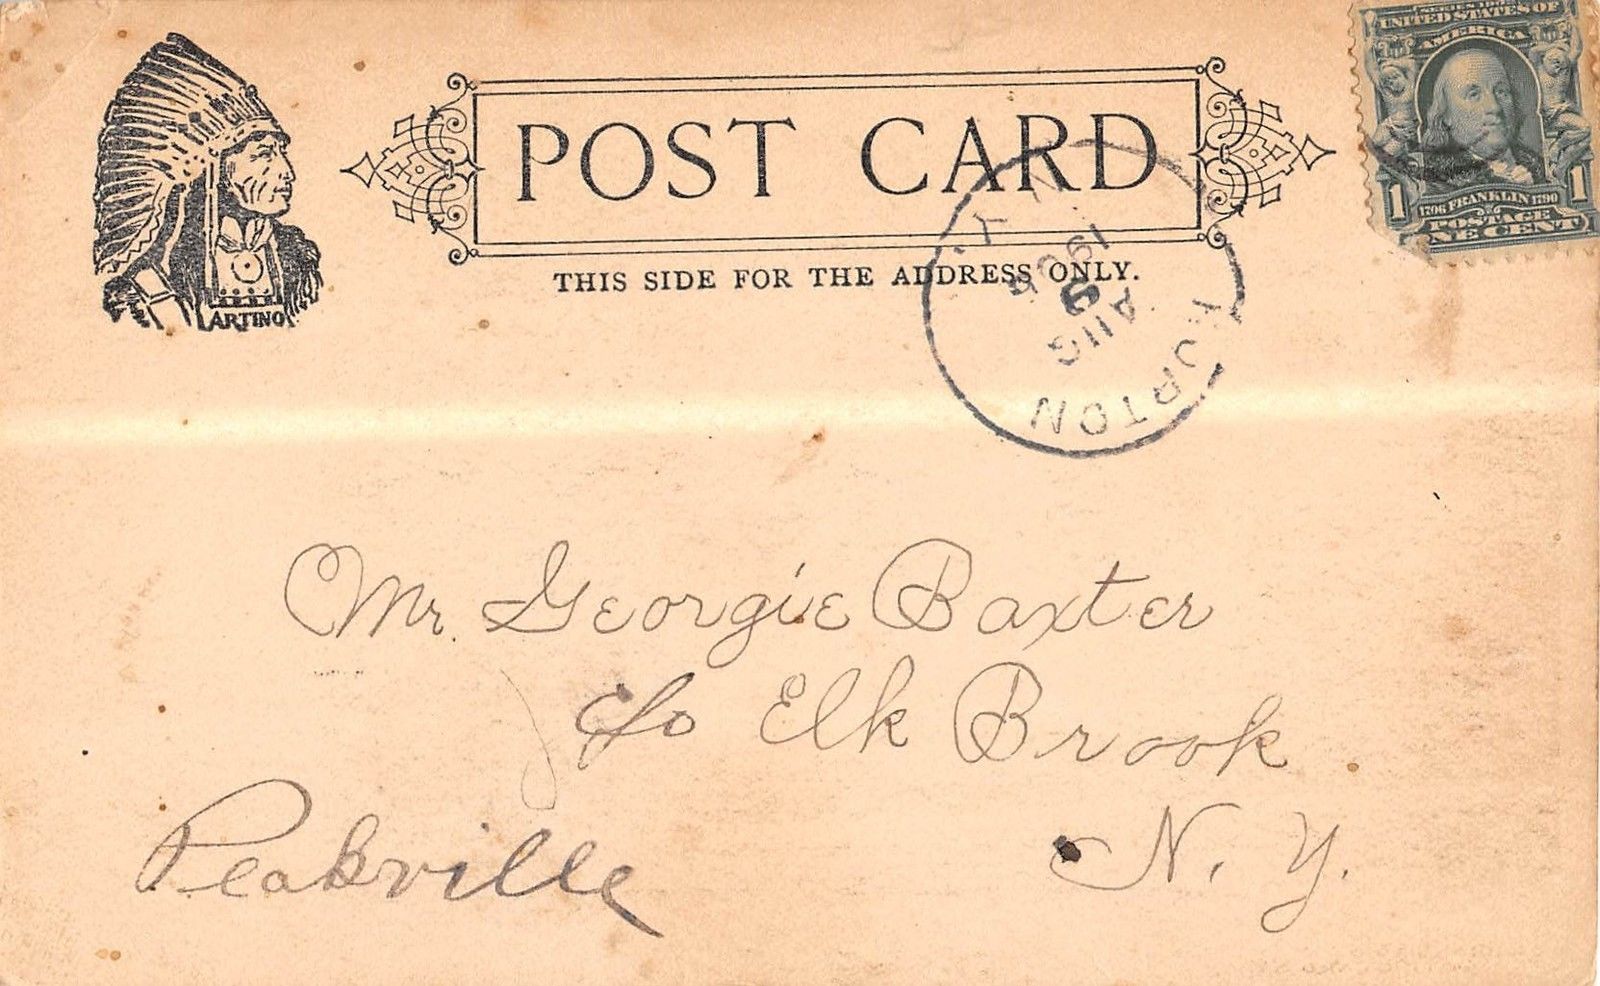 UNITED STATES OF
AMERICA
POST CARD
1 1706 FRANKLIN 1790 1
POSTAGE
ONE CENT
THIS SIDE FOR THE ADDRESS ONLY.
ARTINO
N.Y.
AUG
5
HORTON
Mr. Georgie Baxter
c/o Elk Brook
N. Y.
Peakville